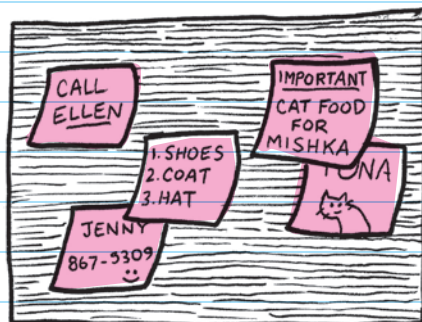 CALL
ELLEN
IMPORTANT
CAT FOOD
FOR
MISHKA
1. SHOES
2. COAT
3. HAT
TUNA
JENNY
867-5309